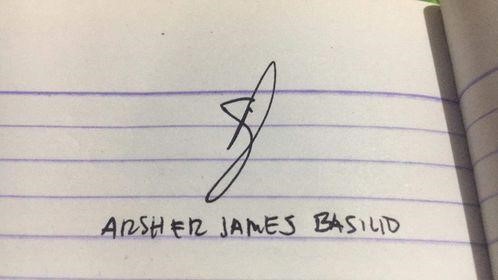 ARSHER JAMES BASILIO